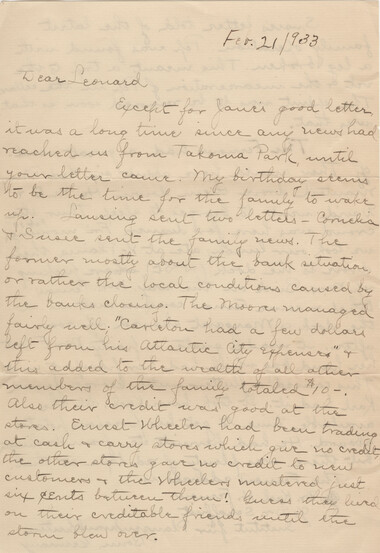 Fev. 21/933
Dear Leonard
Except for Jane's good letter
it was a long time since any news had
reached us from Takoma Park, until
your letter came. My birthday seems
to be the time for the family to wake
up. Lansing sent two letters - Cornelia
& Susie sent the family news. The
former mostly about the bank situation,
or rather the local conditions caused by
the banks closing. The Moores managed
fairly well; "Carleton had a few dollars
left from his Atlantic City Expenses" &
this added to the wealth of all other
members of the family totaled $10-.
Also their credit was good at the
stores. Ernest Wheeler had been trading
at cash & carry stores which give no credit,
the other stores gave no credit to new
customers & the Wheelers mustered just
six cents between them! Guess they lived
on their creditable friends until the
storm blew over.